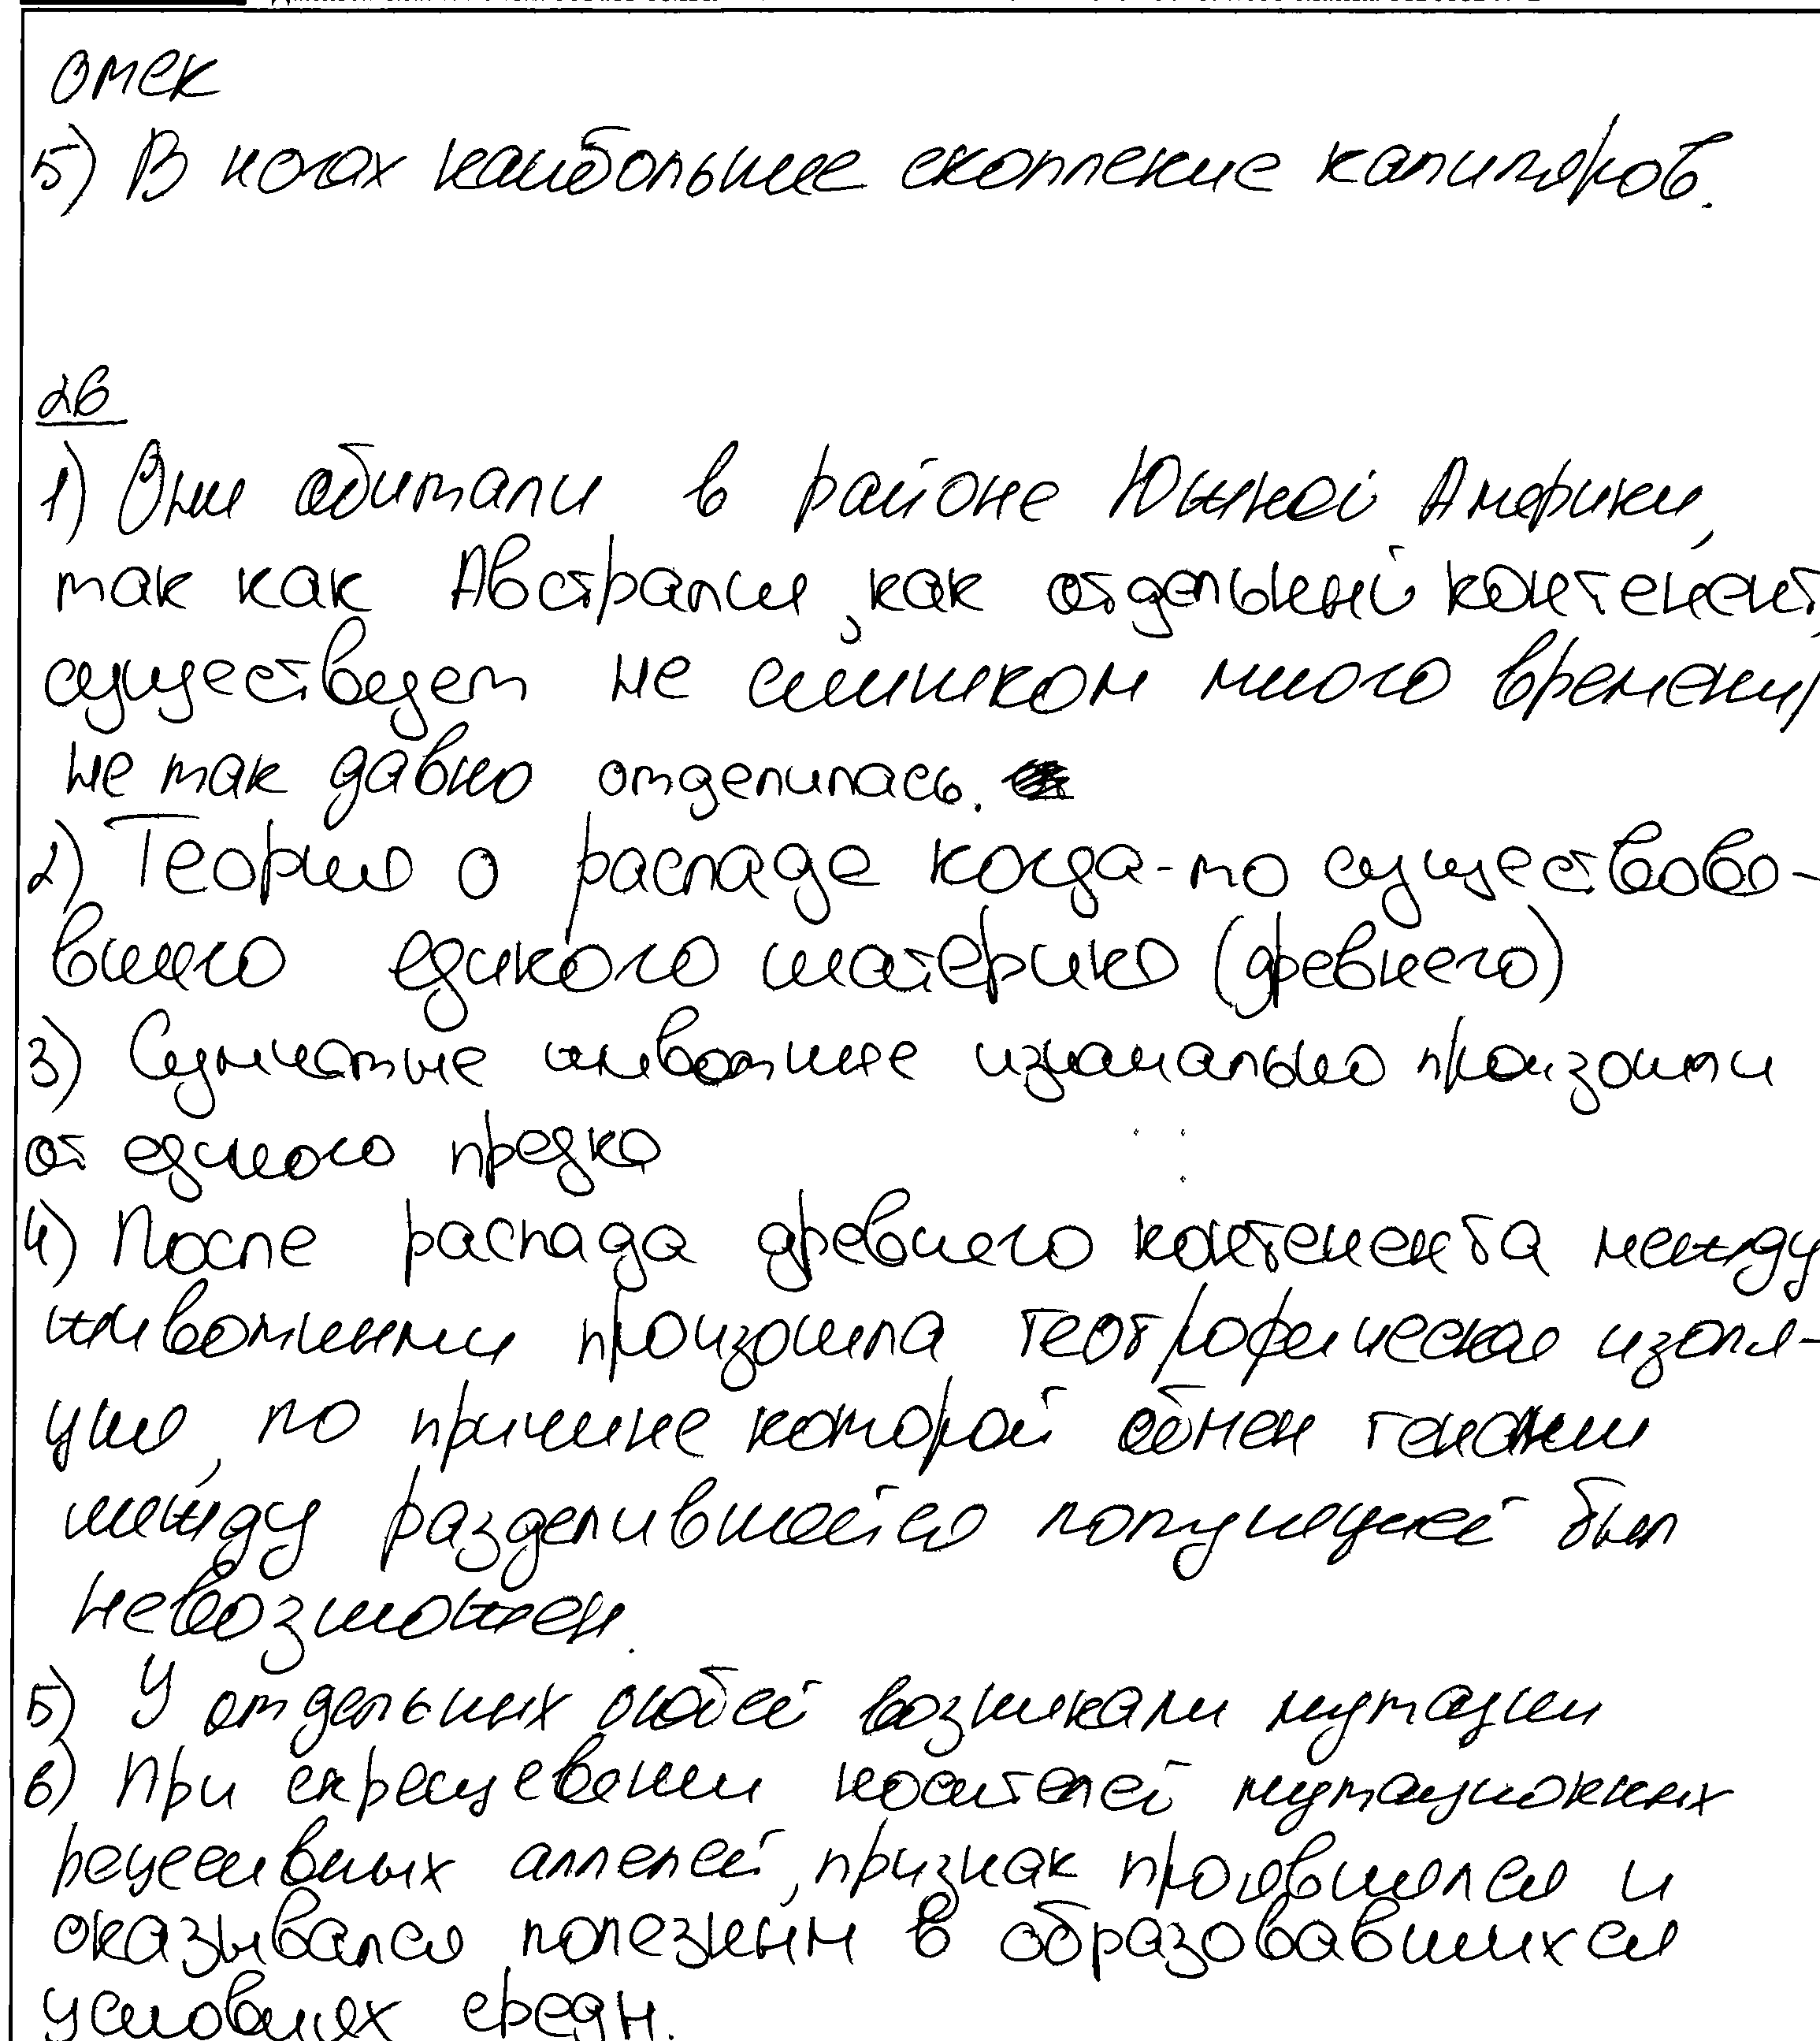 отек
5) В ногах наибольшее скопление капиляров.
26
1) Они обитали в районе Южной Америки,
так как Австралия, как отдельный контенент,
существует не слишком много времени,
не так давно отделилась.
2) Теория о распаде когда-то существова-
вшего единого материка (древнего)
3) Сумчатые животные изначально произошли
от единого предка
4) После распада древнего контенента между
животными произошла географическая изоля-
ция, по причине которой обмен генами
между разделившейся популяцией был
невозможен.
5) У отдельных особей возникали мутации
6) При скрещевании носителей мутационных
рецесивных аллелей, признак проявился и
оказывался полезным в образовавшихся
условиях среды.